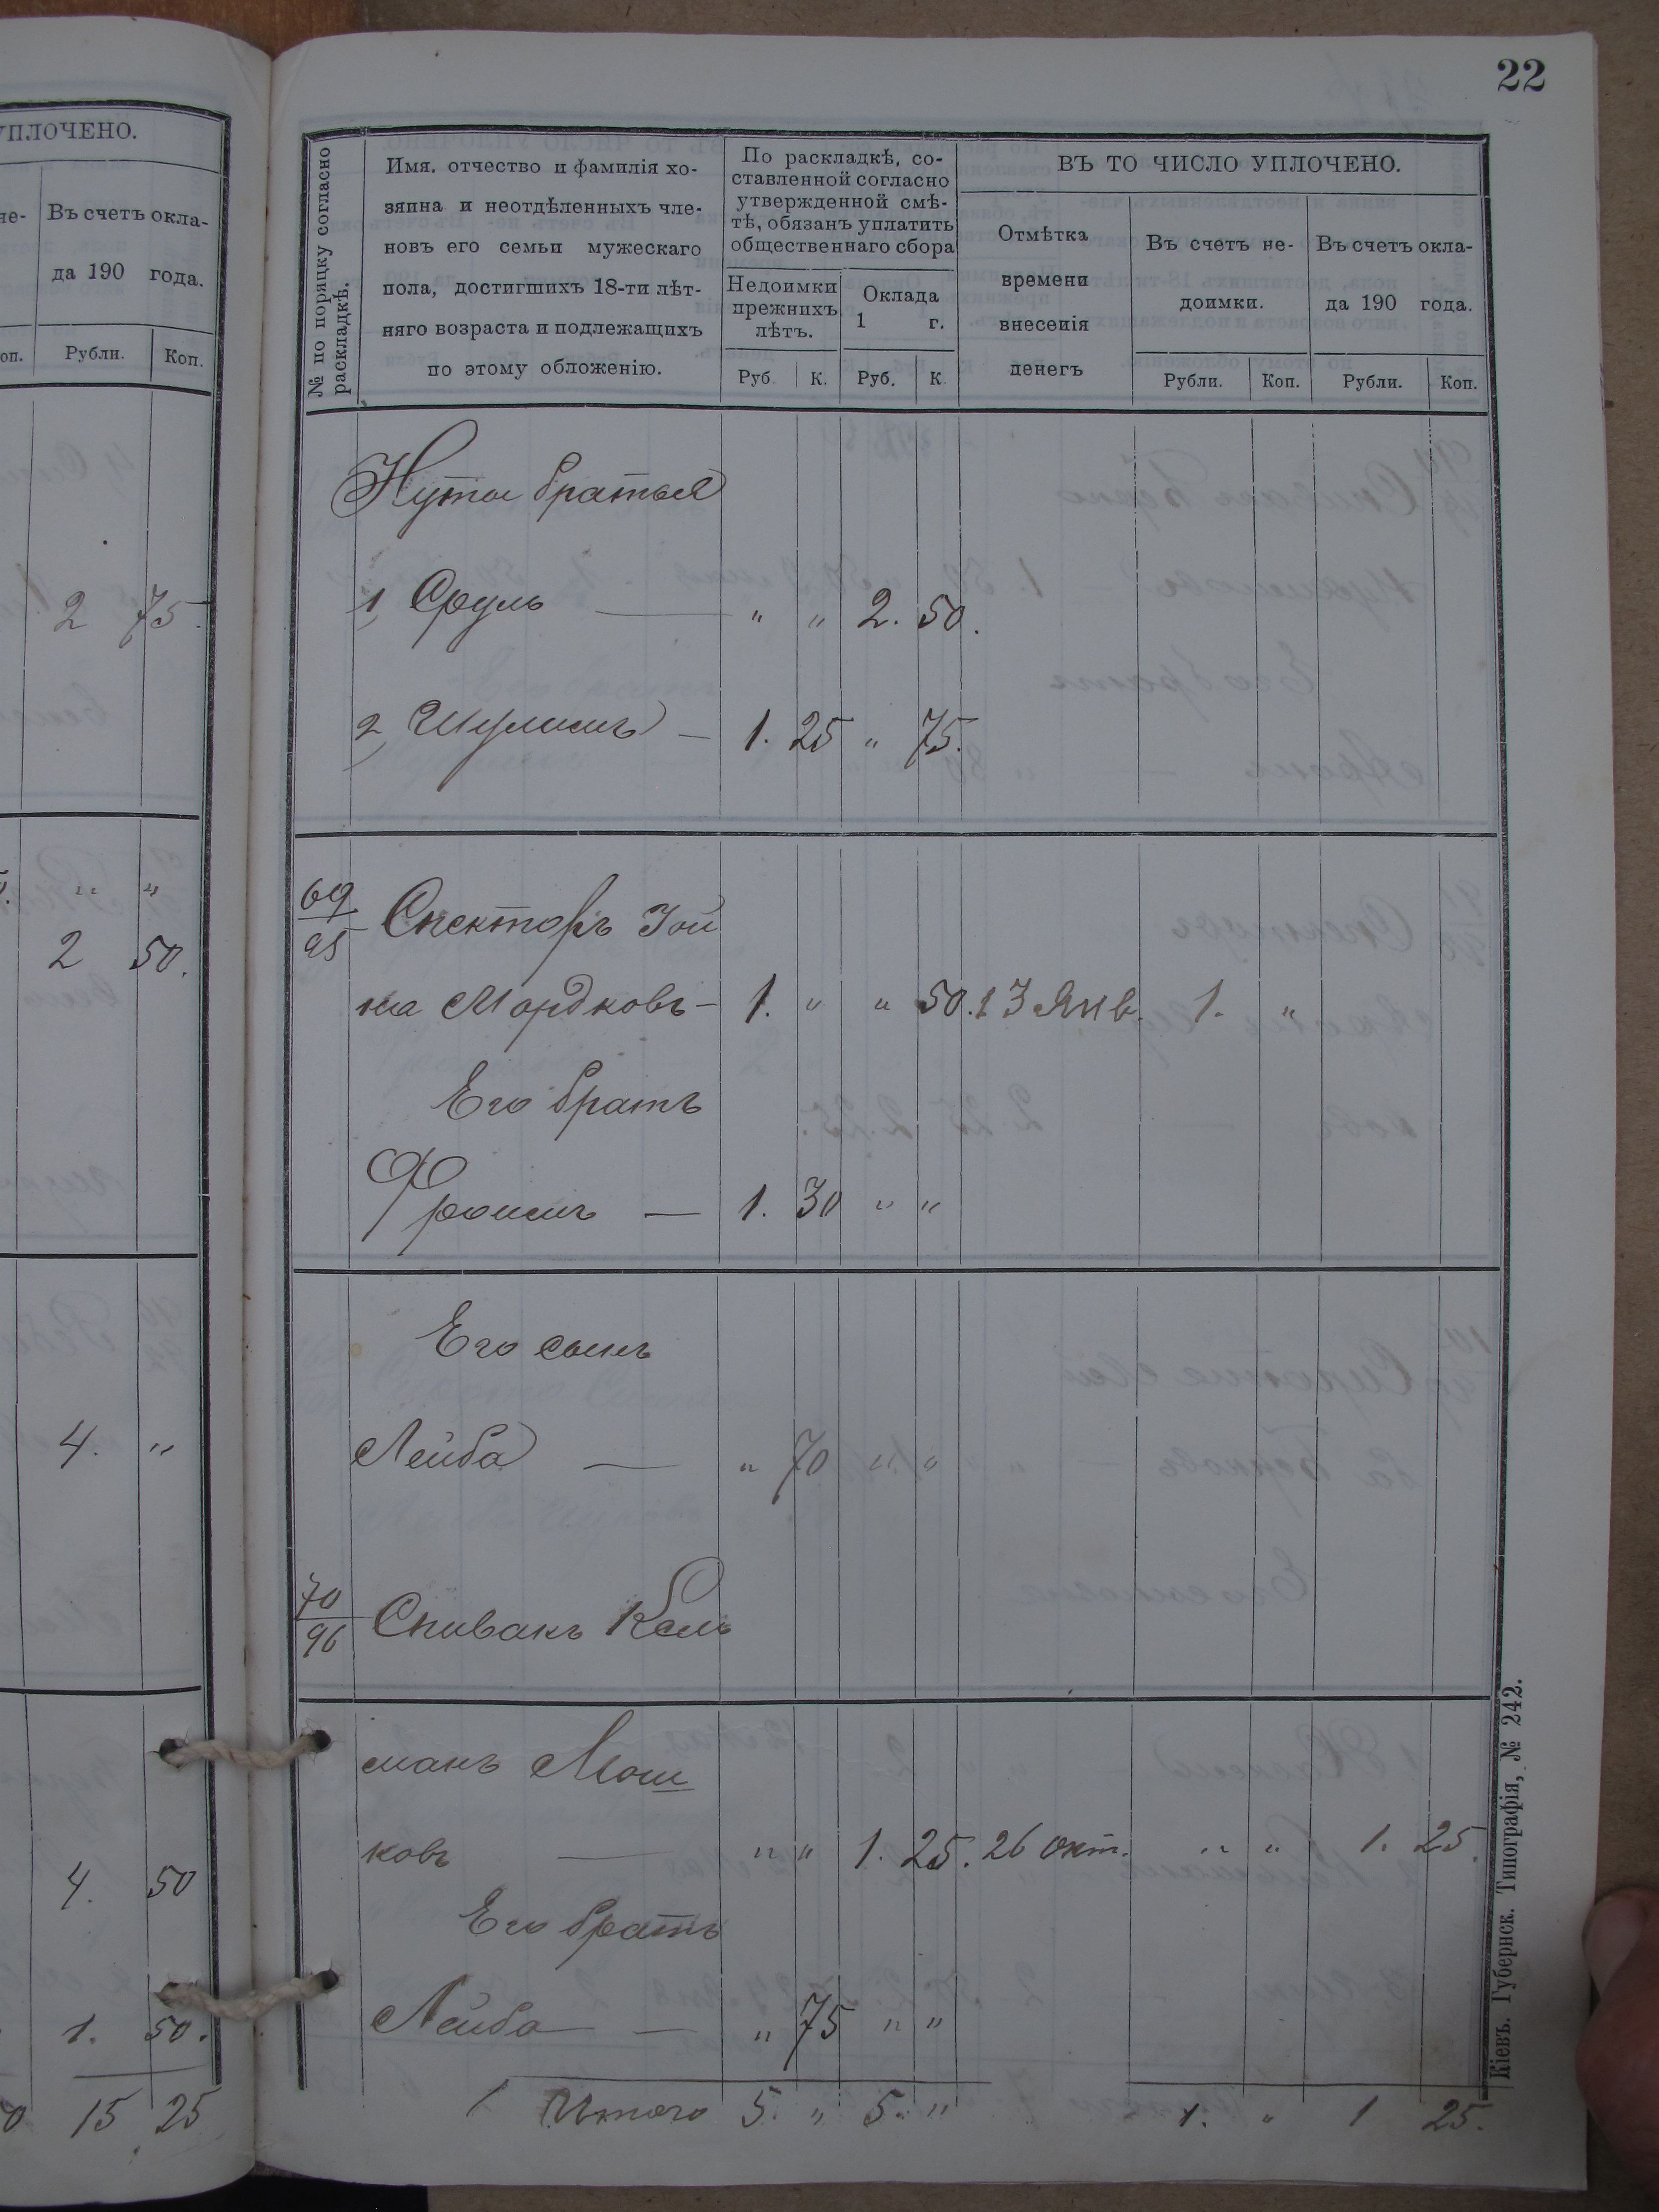 УПЛОЧЕНО.
не- Въ счетъ окла-
да 190 года.
оп. Рубли. Коп.
2 75.
" "
2 50.
4. "
4. 50
1. 50.
0 15 25
22
№ по порядку согласно раскладкѣ.
Имя, отчество и фамилія хо-
зяина и неотдѣленныхъ чле-
новъ его семьи мужескаго
пола, достигшихъ 18-ти лѣт-
няго возраста и подлежащихъ
по этому обложенію.
По раскладкѣ, со-
ставленной согласно
утвержденной смѣ-
тѣ, обязанъ уплатить
общественнаго сбора
Недоимки прежнихъ лѣтъ.
Оклада 1 г.
Руб. К. Руб. К.
ВЪ ТО ЧИСЛО УПЛОЧЕНО.
Отмѣтка
времени
внесенія
денегъ
Въ счетъ не-
доимки.
Рубли. Коп.
Въ счетъ окла-
да 190 года.
Рубли. Коп.
Нута братья
1, Сруль — " " 2. 50.
2, Шулимъ — 1. 25 " 75.
69/95 Спекторъ Іой
на Мордковъ — 1. " " 50. 13 Янв. 1. "
Его братъ
Фроимъ — 1. 30 " "
Его сынъ
Лейба — " 70 " "
70/96 Спивакъ Кель
манъ Мош
ковъ — " " 1. 25. 26 окт. " " 1. 25.
Его братъ
Лейба — " 75 " "
Итого 5. " 5. " 1. " 1 25.
Кіевъ. Губернск. Типографія, № 242.